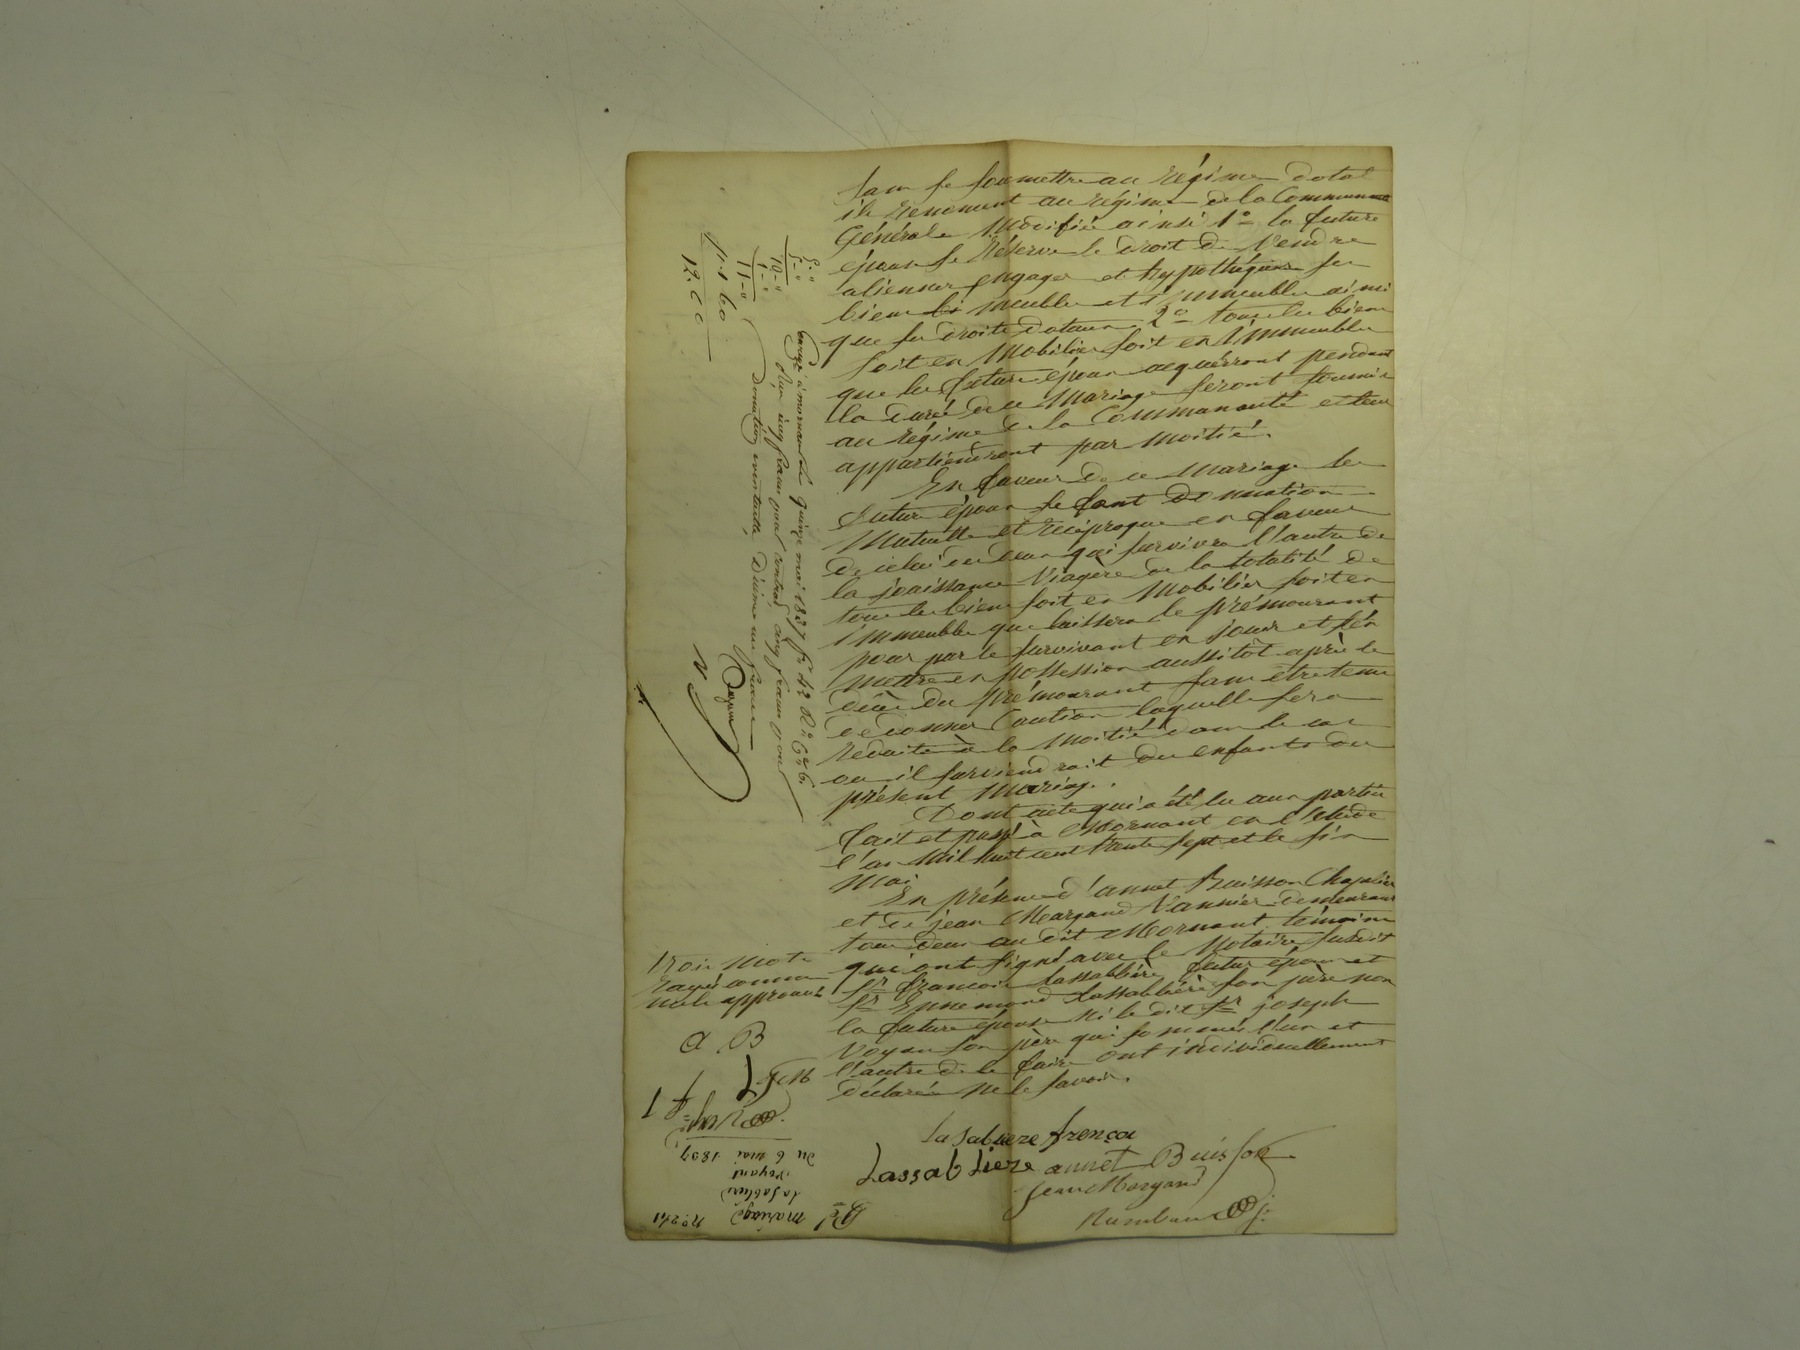 sans se soumettre au régime dotal
ils renoncent au régime de la Communauté
Générale Modifiée ainsi 1° la future
épouse se Réserve le droit de Vendre
aliéner engager et hypothéquer ses
biens meubles et immeubles ainsi
que ses droits dotaux. 2° tous les biens
soit en Mobilier soit en Immeubles
que les futurs époux acquérront pendant
la durée de ce Mariage seront soumis
au régime de la Communauté et leur
appartiendront par Moitié.
En faveur de ce Mariage les
futurs époux se font Donnation
Mutuelle et réciproque en faveur
de celui des deux qui survivra l'autre de
la jouissance Viagère de la totalité de
tous les biens soit en Mobilier soit en
immeubles que laissera le prémourant
pour par le survivant en jouir et s'en
mettre en possession aussitôt après le
décès du prémourant sans être tenu
de donner Caution laquelle sera
Réduite à la Moitié dans le cas
ou il surviendrait des enfants du
présent Mariage.
Dont acte qui a été lu aux parties
fait et passé à Mornant en l'étude
l'an Mil huit cent trente sept et le six
Mai
En présence d'annet Buisson Chapelier
et de jean Margand Vannier demeurant
tous deux au dit Mornant témoins
qui ont signé avec le Notaire susdit
sr. françois Lassablière futur époux et
sr. Ennemond Lassablière son père non
la future épouse ni le dit sr. joseph
Voyan son père qui sommés l'un et
l'autre de le faire ont individuellement
déclaré ne le savoir.
La Sabliere frença
Lassabliere annet Buisson
Jean Margand
5-"
5-"
10-"
1-"
11-"
1-1 60
12. 60
à mornant le quinze mai 1837 f° 42 R° C
Reçu cinq francs pour contrat, cinq francs pour
Donation éventuelle, Décime un franc
trois mots
rayés comme
nuls approuvés
a B
L F
J M
N° 241
mariage
Lasabliere
Voyant
Du 6 mai 1837